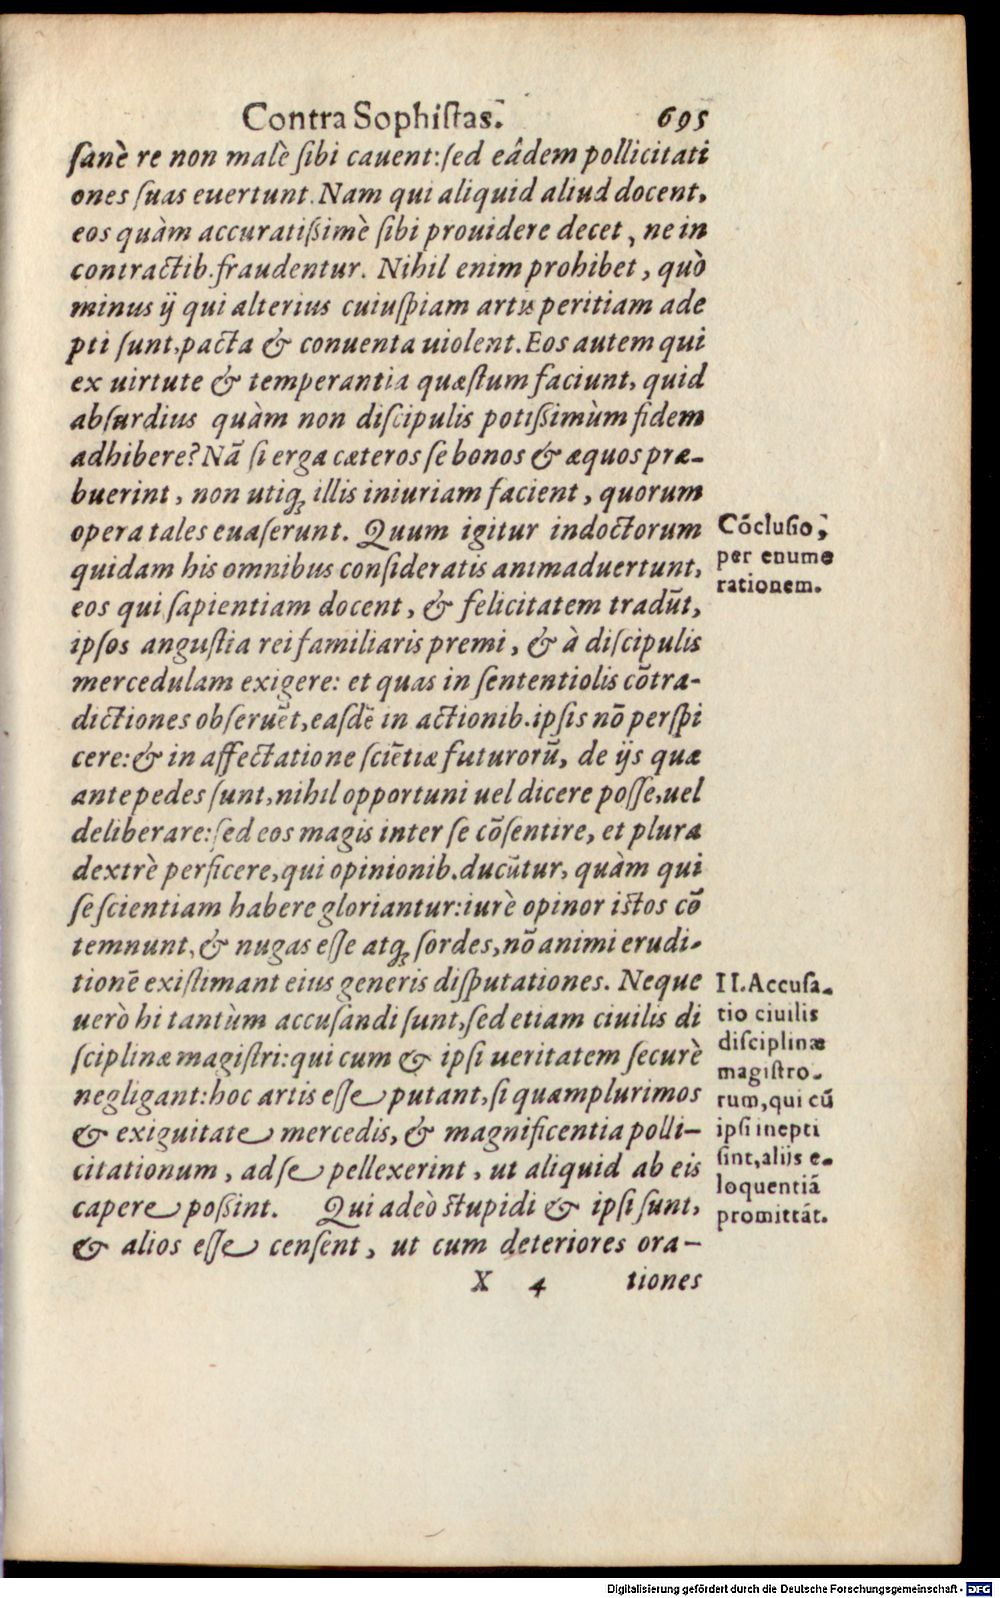 Contra Sophiſtas. 695
ſanè re non malè ſibi cauent: ſed eâdem pollicitati
ones ſuas euertunt. Nam qui aliquid aliud docent,
eos quàm accuratiſsimè ſibi prouidere decet, ne in
contractib. fraudentur. Nihil enim prohibet, quò
minus ij qui alterius cuiuſpiam artis peritiam ade
pti ſunt, pacta & conuenta uiolent. Eos autem qui
ex uirtute & temperantia quæſtum faciunt, quid
abſurdius quàm non diſcipulis potiſsimùm fidem
adhibere? Nã ſi erga cæteros ſe bonos & æquos præ-
buerint, non utiq; illis iniuriam facient, quorum
opera tales euaſerunt. Quum igitur indoctorum
quidam his omnibus conſideratis animaduertunt,
eos qui ſapientiam docent, & felicitatem tradũt,
ipſos anguſtia rei familiaris premi, & à diſcipulis
mercedulam exigere: et quas in ſententiolis cõtra-
dictiones obſeruẽt, eaſdẽ in actionib. ipſis nõ perſpi
cere: & in affectatione ſciẽtiæ futurorũ, de ijs quæ
ante pedes ſunt, nihil opportuni uel dicere poſſe, uel
deliberare: ſed eos magis inter ſe cõſentire, et plura
dextrè perficere, qui opinionib. ducũtur, quàm qui
ſe ſcientiam habere gloriantur: iurè opinor iſtos cõ
temnunt, & nugas eſſe atq; ſordes, nõ animi erudi-
tionẽ exiſtimant eius generis diſputationes. Neque
uerò hi tantùm accuſandi ſunt, ſed etiam ciuilis di
ſciplinæ magiſtri: qui cum & ipſi ueritatem ſecurè
negligant: hoc artis eſſe putant, ſi quamplurimos
& exiguitate mercedis, & magnificentia polli-
citationum, ad ſe pellexerint, ut aliquid ab eis
capere poſsint. Qui adeò ſtupidi & ipſi ſunt,
& alios eſſe cenſent, ut cum deteriores ora-
X 4 tiones
Cõcluſio,
per enume
rationem.
II. Accuſa-
tio ciuilis
diſciplinæ
magiſtro-
rum, qui cũ
ipſi inepti
ſint, alijs e-
loquentiã
promittãt.
Digitalisierung gefördert durch die Deutsche Forschungsgemeinschaft - DFG